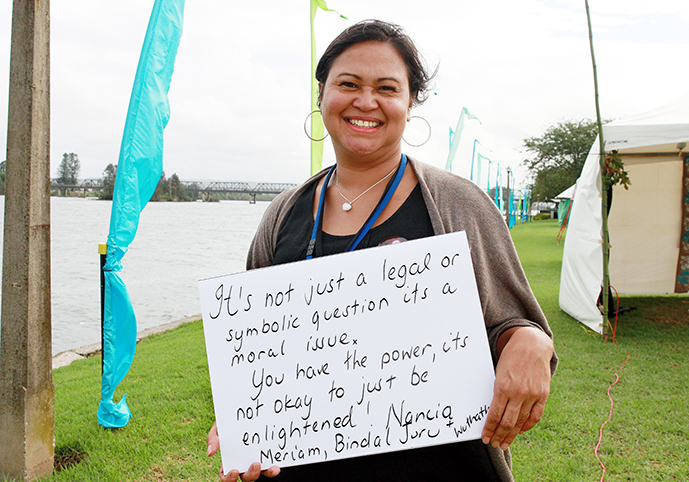 It's not just a legal or
symbolic question its a
moral issue.
You have the power, its
not okay to just be
enlightened! Nancia
Meriam, Bindal Juru + Wuthathi